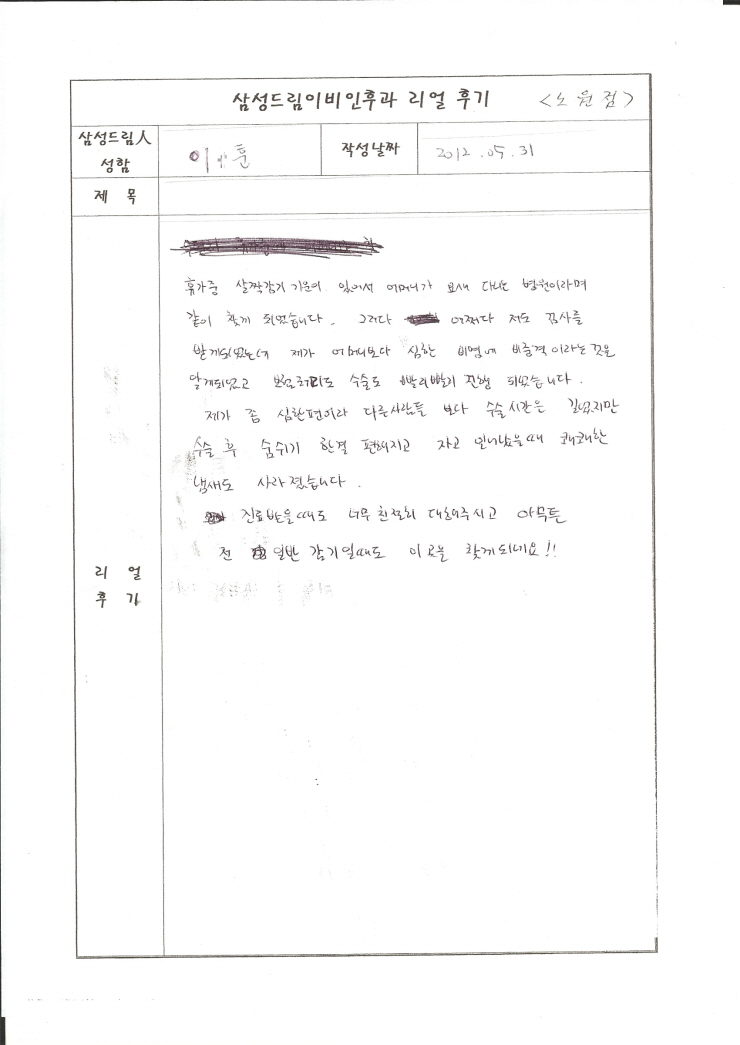 삼성드림이비인후과 리얼 후기 <노원점>
삼성드림人 성함
이 훈
작성날짜
2012.05.31
제 목
리 얼 후 기
휴가중 살짝감기 기운이 있어서 어머니가 요새 다니는 병원이라며
같이 찾게 되었습니다. 그러다 어쩌다 저도 검사를
받게되었는데 제가 어머니보다 심한 비염에 비중격이라는것을
알게되었고 보험처리도 수술도 빨리빨리 진행 되었습니다.
제가 좀 심한편이라 다른사람들 보다 수술시간은 길었지만
수술 후 숨쉬기 한결 편해지고 자고 일어났을때 쾌쾌한
냄새도 사라졌습니다.
진료받을때도 너무 친절히 대해주시고 아무튼
전 일반 감기일때도 이곳을 찾게되네요!!